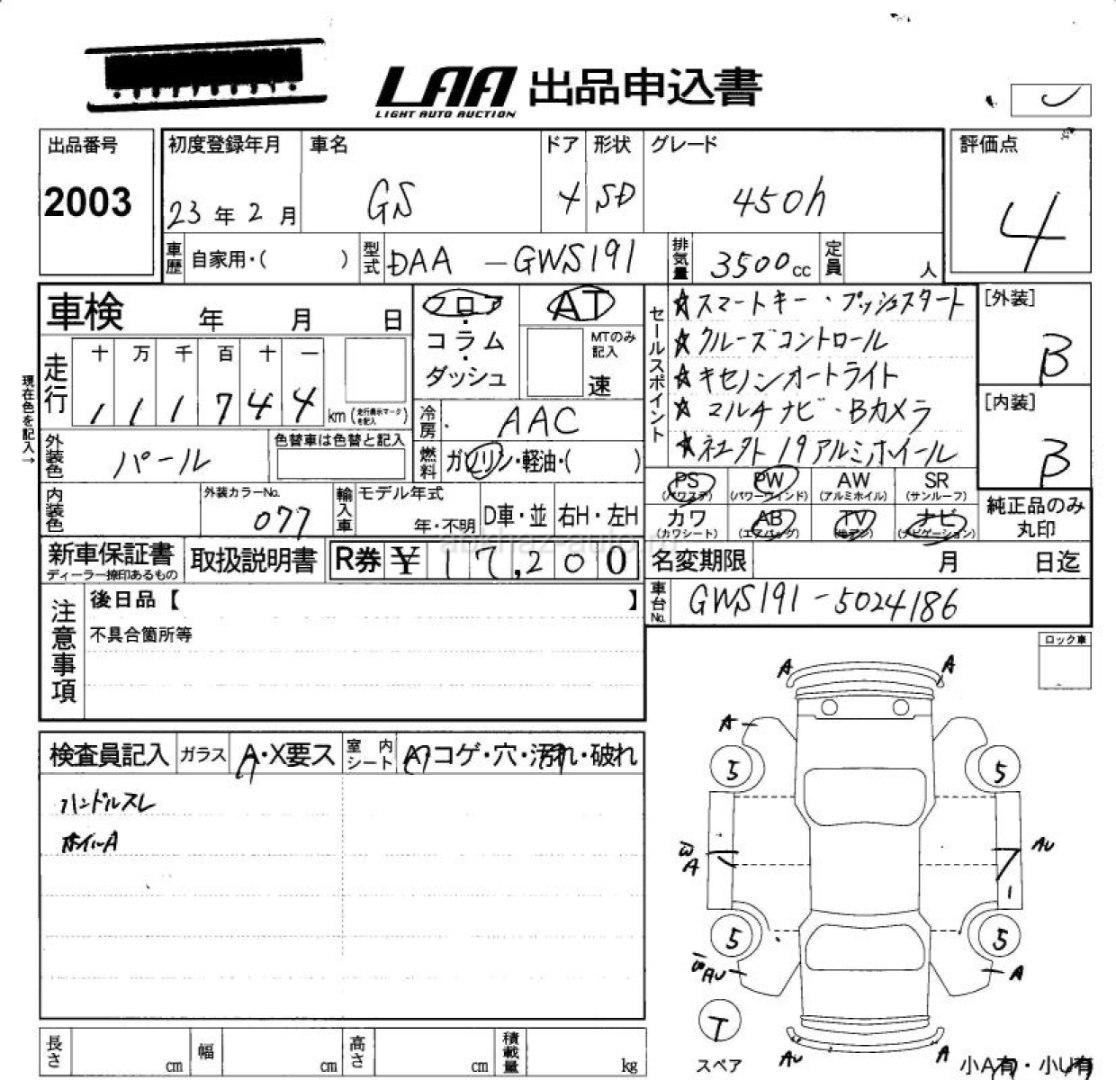 LAA 出品申込書
LIGHT AUTO AUCTION
出品番号
2003
初度登録年月
23年2月
車名
GS
ドア
4
形状
SD
グレード
450h
評価点
4
車歴
自家用・( )
型式
DAA-GWS191
排気量
3500cc
定員
人
車検 年 月 日
フロア・コラム・ダッシュ
AT
MTのみ記入
速
セールスポイント
☆スマートキー・プッシュスタート
☆クルーズコントロール
☆キセノンオートライト
☆マルチナビ・Bカメラ
☆社外19アルミホイール
[外装]
B
[内装]
B
現在色を記入→
走行
十 万 千 百 十 一
111744
km(走行表示マークを記入)
冷房
AAC
外装色
パール
色替車は色替と記入
燃料
ガソリン・軽油・( )
内装色
外装カラーNo.
077
輸入車
モデル年式
年・不明
D車・並
右H・左H
PS
(パワステ)
PW
(パワーウィンド)
AW
(アルミホイル)
SR
(サンルーフ)
カワ
(カワシート)
AB
(エアバッグ)
TV
ナビ
(ナビゲーション)
純正品のみ丸印
新車保証書
ディーラー捺印あるもの
取扱説明書
R券 ¥17,200
名変期限 月 日迄
注意事項
後日品【 】
不具合箇所等
車台No.
GWS191-5024186
ロック車
検査員記入
ガラス
A・X要ス
室内シート
コゲ・穴・汚れ・破れ
ハンドルスレ
ホイールA
A A
A
5 5
A
AU
1
5 5
AU
A
T
スペア
AU
A
小A有・小U有
長さ cm
幅 cm
高さ cm
積載量 kg